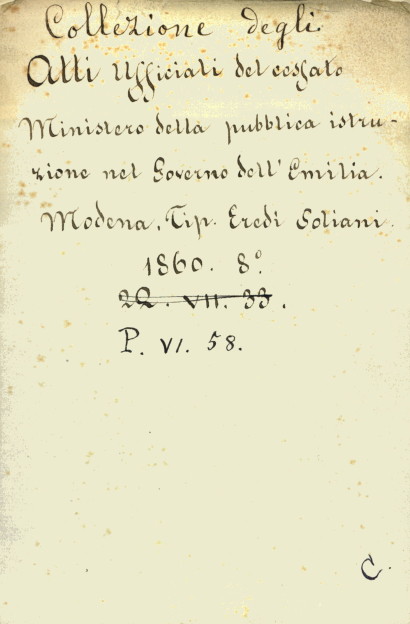 Collezione degli
Atti Ufficiali del cessato
Ministero della pubblica istru-
zione nel Governo dell' Emilia.
Modena. Tip. Eredi Soliani.
1860. 8º.
22. VII. 33.
P. VI. 58.
C.